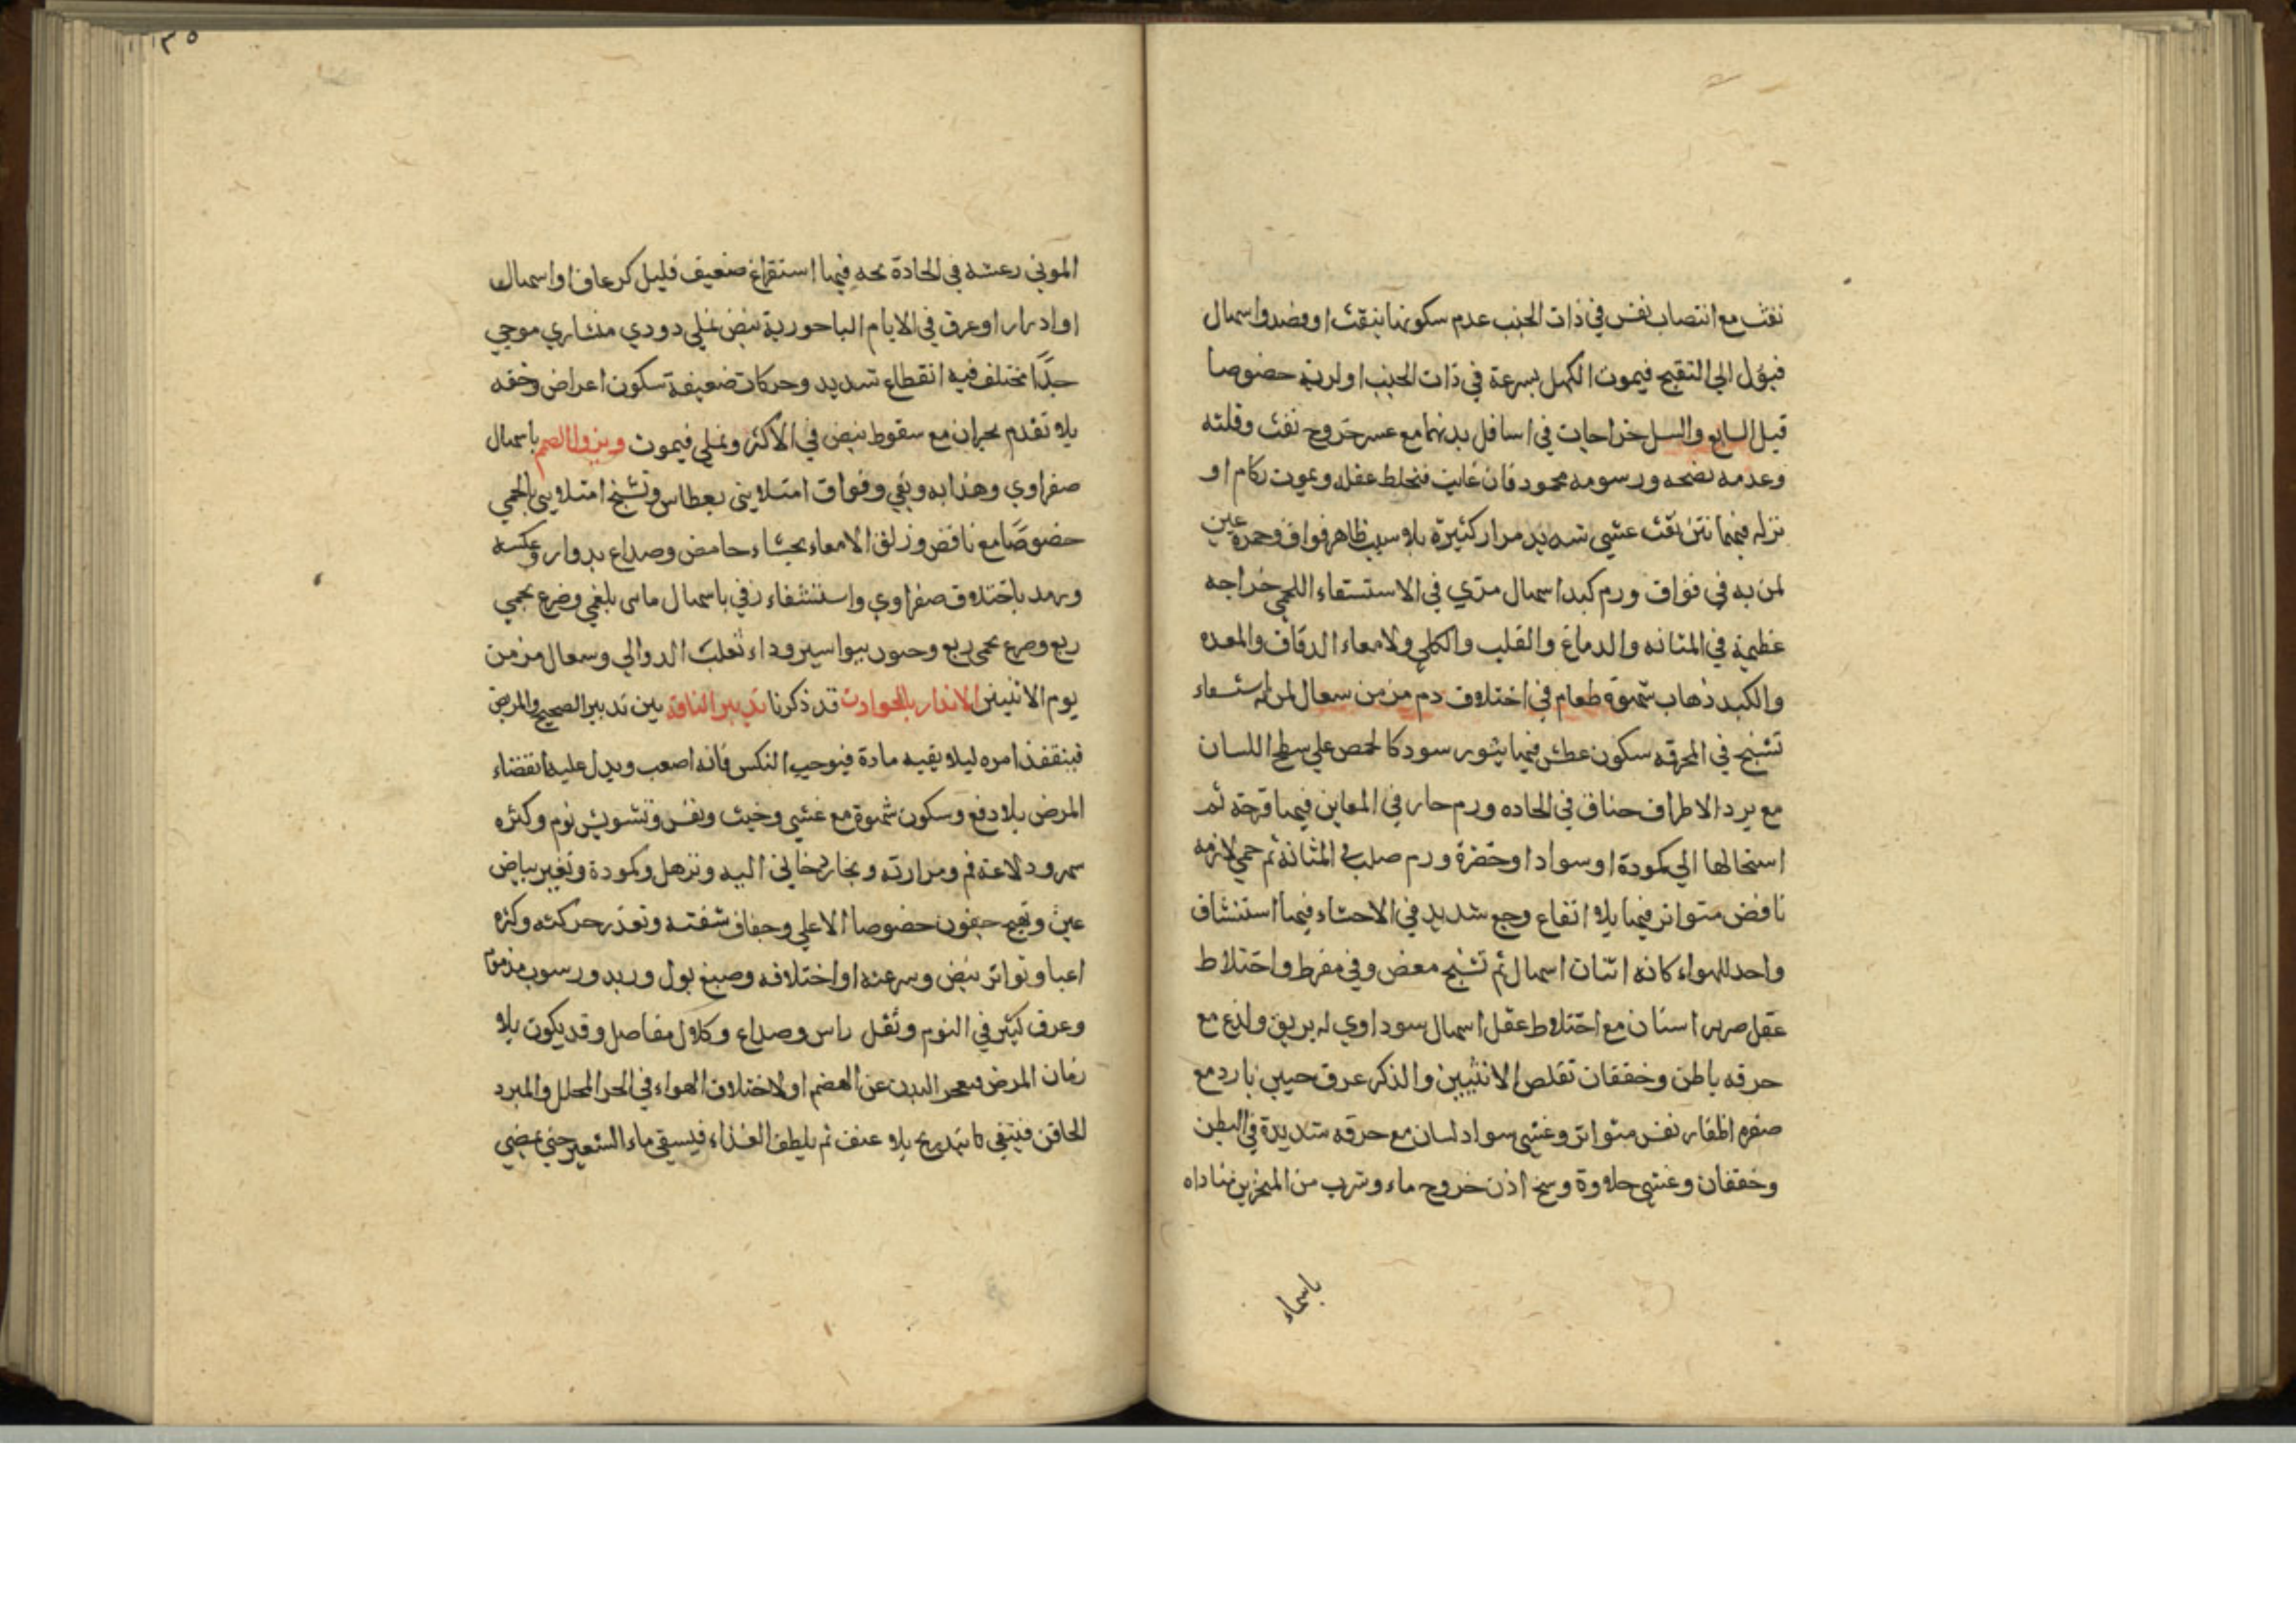 نفث مع انتصاب نفس في ذات الجنب عدم سكونها بنفث او فصد واسهال
فيؤل الي التقيح فيموت الكهل بسرعة في ذات الجنب او لرية خصوصا
قبل السابع والسل خراجات في اسافل بدنهما مع عسر خروج نفث وقلته
وعدمه نضجه ورسوبه محمود فان غابت فتخلط عقله ويموت زكام او
نزله فيهما نتن نفث عشي شديد مرار كثيرة بلا سبب ظاهر فواق وحمرة عين
لمن به في فواق ورم كبد اسهال مري في الاستسقاء اللحمي خراجه
عظيمة في المثانه والدماغ والقلب والكلي ولامعاء الدقاق والمعده
والكبد ذهاب شهوة طعام في اختلاف دم مزمن سعال لمن له استسقاء
تشنج في المحرقه سكون عطش فيها بثور سود كالحمص علي سطح اللسان
مع برد الاطراف خناق في الحاده ورم حار في المغابن فيها قرحة ثم
استحالها الي كمودة او سوادا وخضرة ورم صلب في المثانة ثم حمي لازمه
نافض متواتر فيها بلا انقاع وجع شديد في الاحشاء فيها استنشاق
واحد للهواء كانه اثنان اسهال ثم تشنج مغص وفي مفرط واختلاط
عقل صرير اسنان مع اختلاط عقل اسهال سوداوي له بريق ولذع مع
حرقه باطن وخفقان تقلص الانثيين والذكر عرق جبين بارد مع
صفره اظفار نفس متواتر وغشي سواد لسان مع حرقه شديدة في البطن
وخفقان وغشي حلاوة وسخ اذن خروج ماء وشرب من المنخرين مناداه
باسماء
٣٥
الموتي رعشه في الحادة بحه فيها استفراغ ضعيف قليل كرعاف او اسهال
او ادرار او عرق في الايام الباحورية نبض نملي دودي منشاري موجي
جدًا مختلف فيه انقطاع شديد وحركات ضعيفة سكون اعراض وخفه
بلا تقدم بحران مع سقوط نبض في الاكثر ونملي فيموت ويزول الصمم باسهال
صفراوي وهذا به وبقي وفواق امتلايي بعطاس وتشنج امتلايي بالحمي
خصوصًا مع نافض وزلق الامعاء بجشاء حامض وصداع بدوار وعكسه
ورمد باختلاف صفراوي واستسقاء زقي باسهال ماي بلغمي وصرع بحمي
ربع وصرع بحمي ربع وجنون ببواسير وداء ثعلب الدوالي وسعال مزمن
يوم الانثيين الانذار بالحوادث قد ذكرنا تدبير الناقه بين تدبير الصحيح والمريض
فيتفقد امره ليلا بقيه مادة فيوجب النكس فانه اصعب ويدل عليها انقضاء
المرض بلا دفع وسكون شهوة مع غشي وخبث ونفس وتشويش نوم وكثره
سهر ولاعة فم ومرارته وبخار دخاني اليه وترهل وكمودة وتغير بياض
عين وتهيج جفون خصوصا الاعلي وجفاف شفته وتعذر حركته وكثره
اعيا وتواتر نبض وسرعته او اختلافه وصبغ بول وزبد ورسوب مذموم
وعرق كثير في النوم وثقل راس وصداع وكلال مفاصل وقد يكون بلا
زمان المرض فيعجز البدن عن الهضم او لاختلاف الهواء في الحر المحلل والمبرد
الحاقن فينقي كا بتدريج بلا عنف ثم يلطف الغذاء فيسقي ماء الشعير حتي يمضي